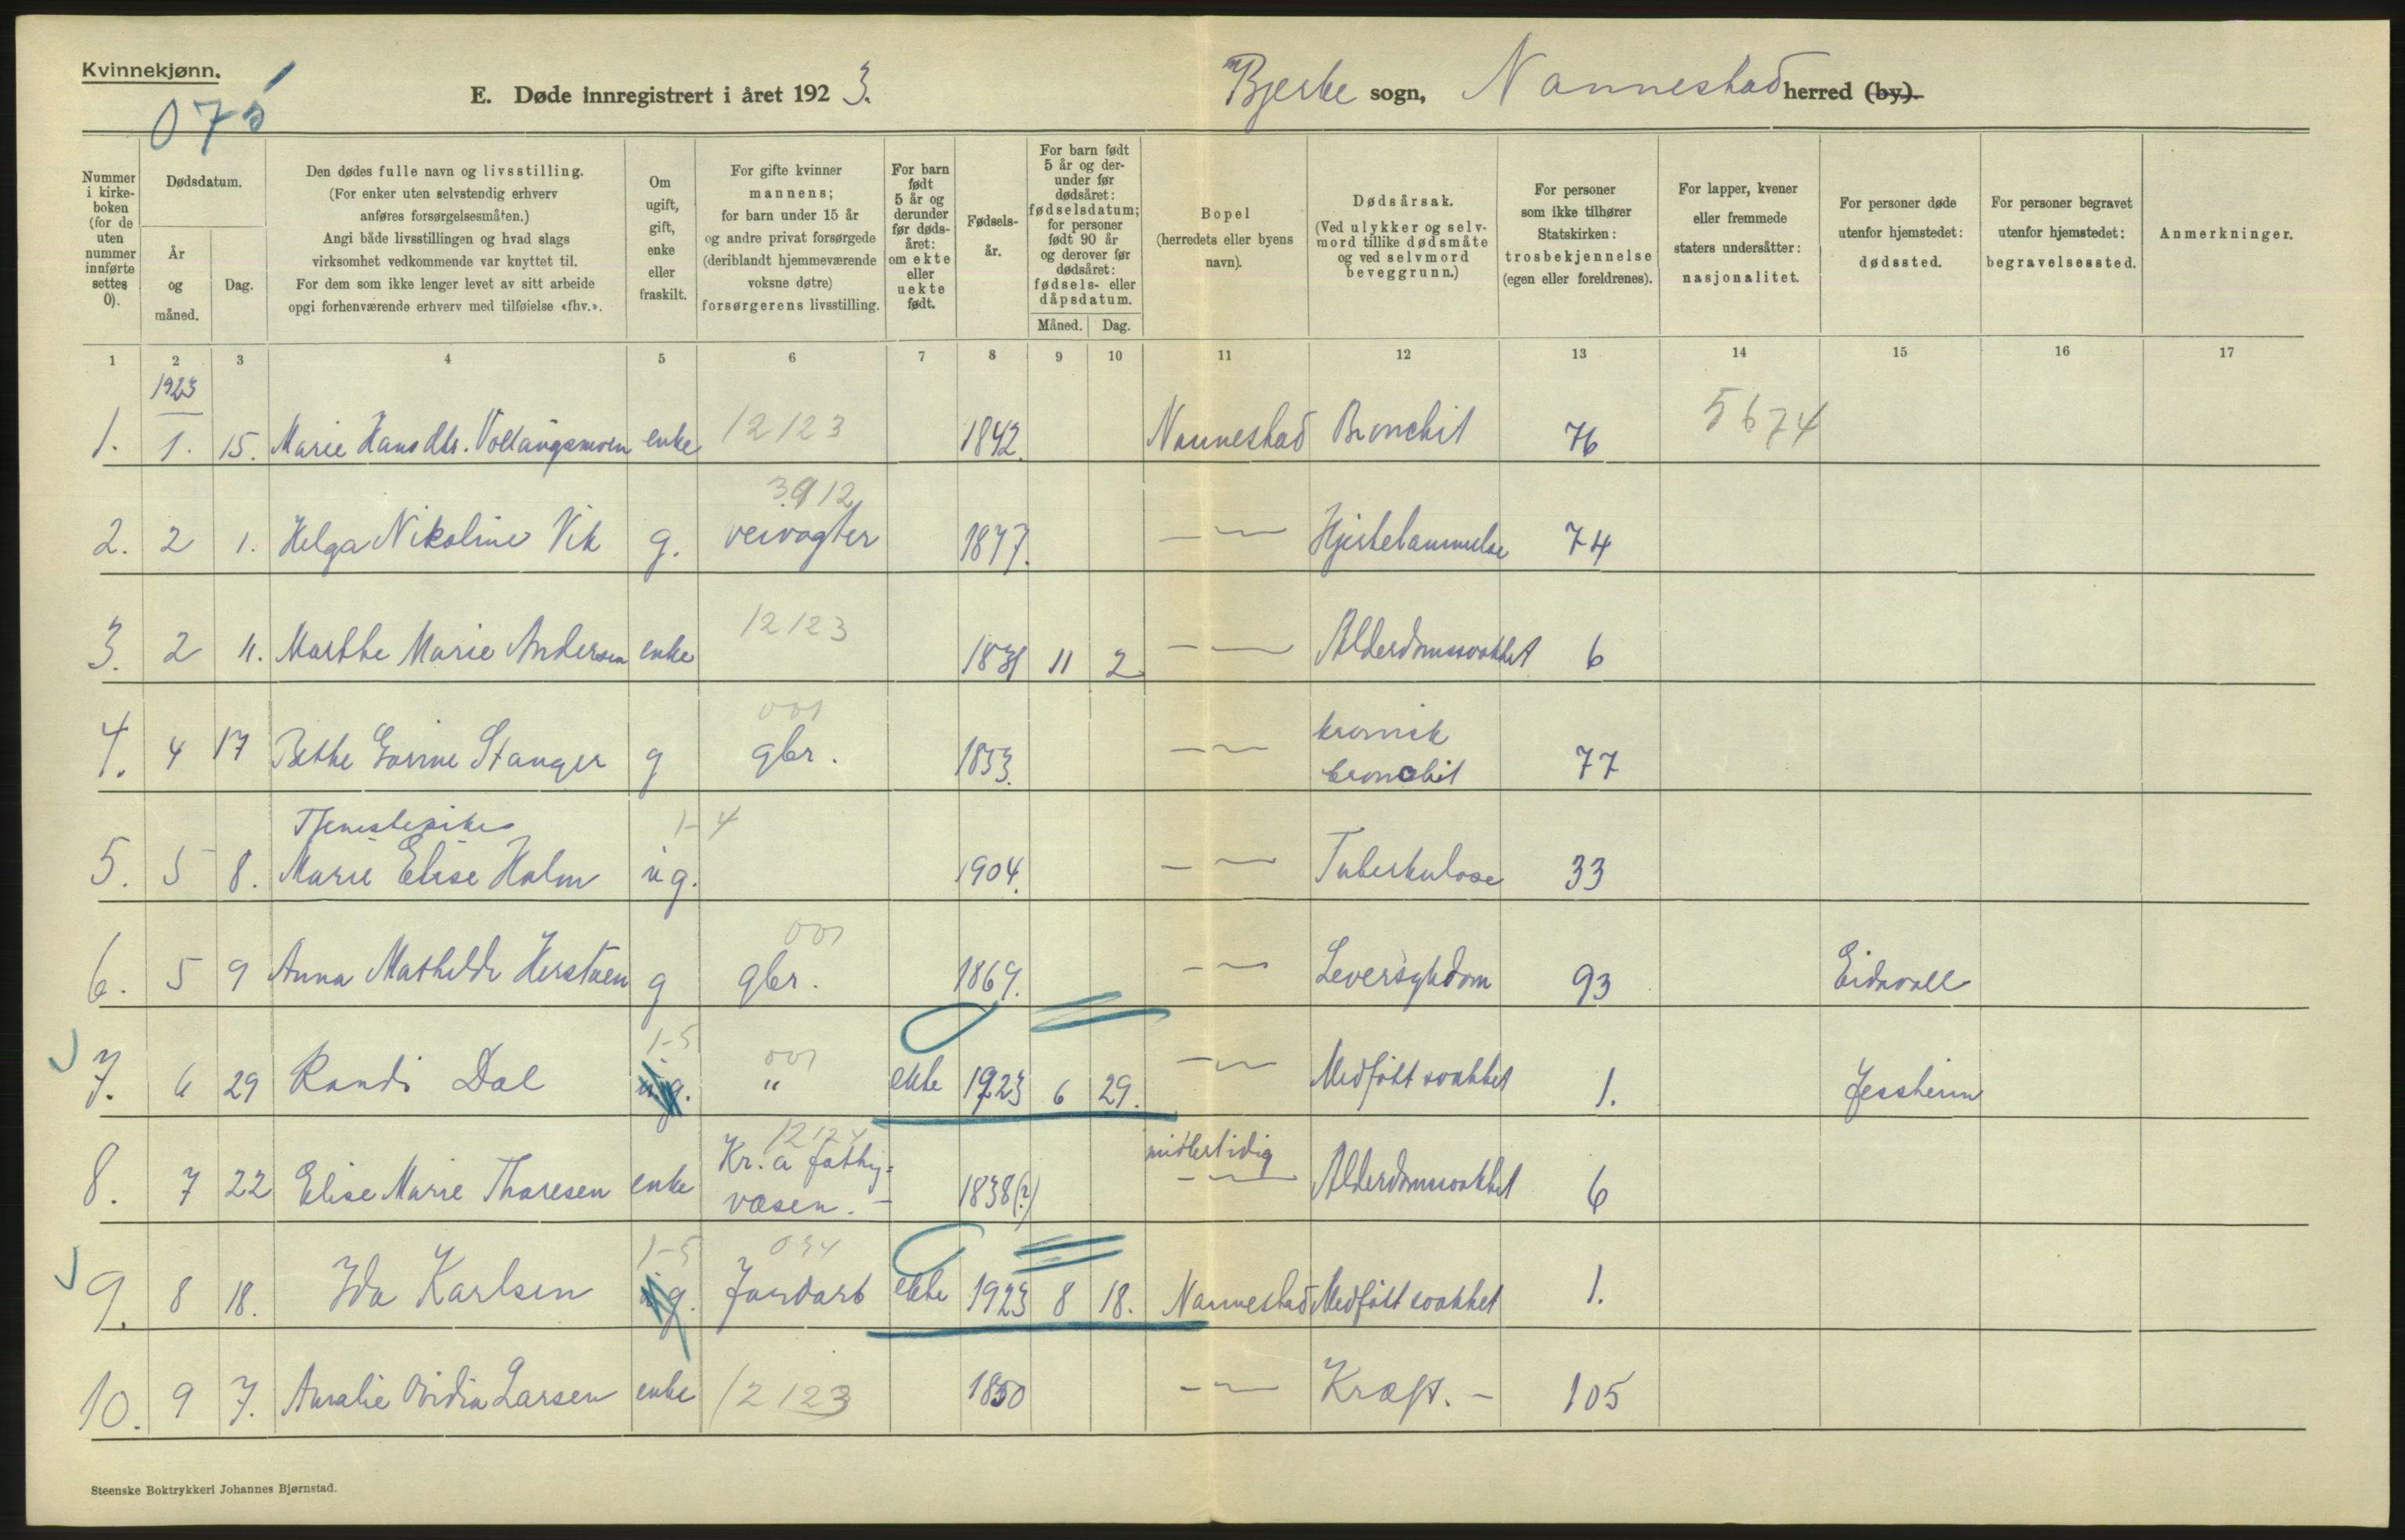 Kvinnekjønn.
E. Døde innregistrert i året 1923.
Bjerke sogn, Nannestad herred (by).
Nummer i kirke-boken (for de uten nummer innførte settes 0).
Dødsdatum.
År og måned.
Dag.
Den dødes fulle navn og livsstilling.
(For enker uten selvstendig erhverv
anføres forsørgelsesmåten.)
Angi både livsstillingen og hvad slags
virksomhet vedkommende var knyttet til.
For dem som ikke lenger levet av sitt arbeide
opgi forhenværende erhverv med tilføielse «fhv.».
Om ugift, gift, enke eller fraskilt.
For gifte kvinner
mannens;
for barn under 15 år
og andre privat forsørgede
(deriblandt hjemmeværende
voksne døtre)
forsørgerens livsstilling.
For barn født 5 år og derunder før døds-året: om ekte eller uekte født.
Fødsels-år.
For barn født 5 år og der-under før dødsåret: fødselsdatum; for personer født 90 år og derover før dødsåret: fødsels- eller dåpsdatum.
Måned. Dag.
Bopel
(herredets eller byens
navn).
Dødsårsak.
(Ved ulykker og selv-
mord tillike dødsmåte
og ved selvmord
beveggrunn.)
For personer
som ikke tilhører
Statskirken:
trosbekjennelse
(egen eller foreldrenes).
For lapper, kvener
eller fremmede
staters undersåtter:
nasjonalitet.
For personer døde
utenfor hjemstedet:
dødssted.
For personer begravet
utenfor hjemstedet:
begravelsessted.
Anmerkninger.
1 2 3 4 5 6 7 8 9 10 11 12 13 14 15 16 17
1923
1. 1. 15. Marie Hansdtr. enke 12123 1842. Nannestad Bronchit 76 5674
3912
2. 2 1. Helga Nikoline Vik g. veivogter 1847. — — Hjertelammelse 74
12123
3. 2 11. Marthe Marie Andersen enke 1831 11 2 — — Alderdomssvakhet 6
001
4. 4 17 Stanger g gbr. 1853. — — kronisk
bronchit 77
Tjenestepike 1-4
5. 5 8. Marie Elise Holm ug. 1904. — — Tuberkulose 33
001
6. 5 9 Anna Mathilde Herstuen g gbr. 1869. — — Leversykdom 93 Eidsvoll
1-5 001
7. 6 29 Randi Dal ug. " ekte 1923 6 29. — — Medfødt svakhet 1. Jessheim
Kr.a midlertidig
8. 7 22 Elise Marie Thoresen enke væsen. — 1838(?) — — Alderdomssvakhet 6
1-5
9. 8 18. Ida Karlsen ug. Jordarb ekte 1923 8 18. Nannestad Medfødt svakhet 1.
10. 9 7. Larsen enke 12123 1850 — — Kræft. — 105
Steenske Boktrykkeri Johannes Bjørnstad.